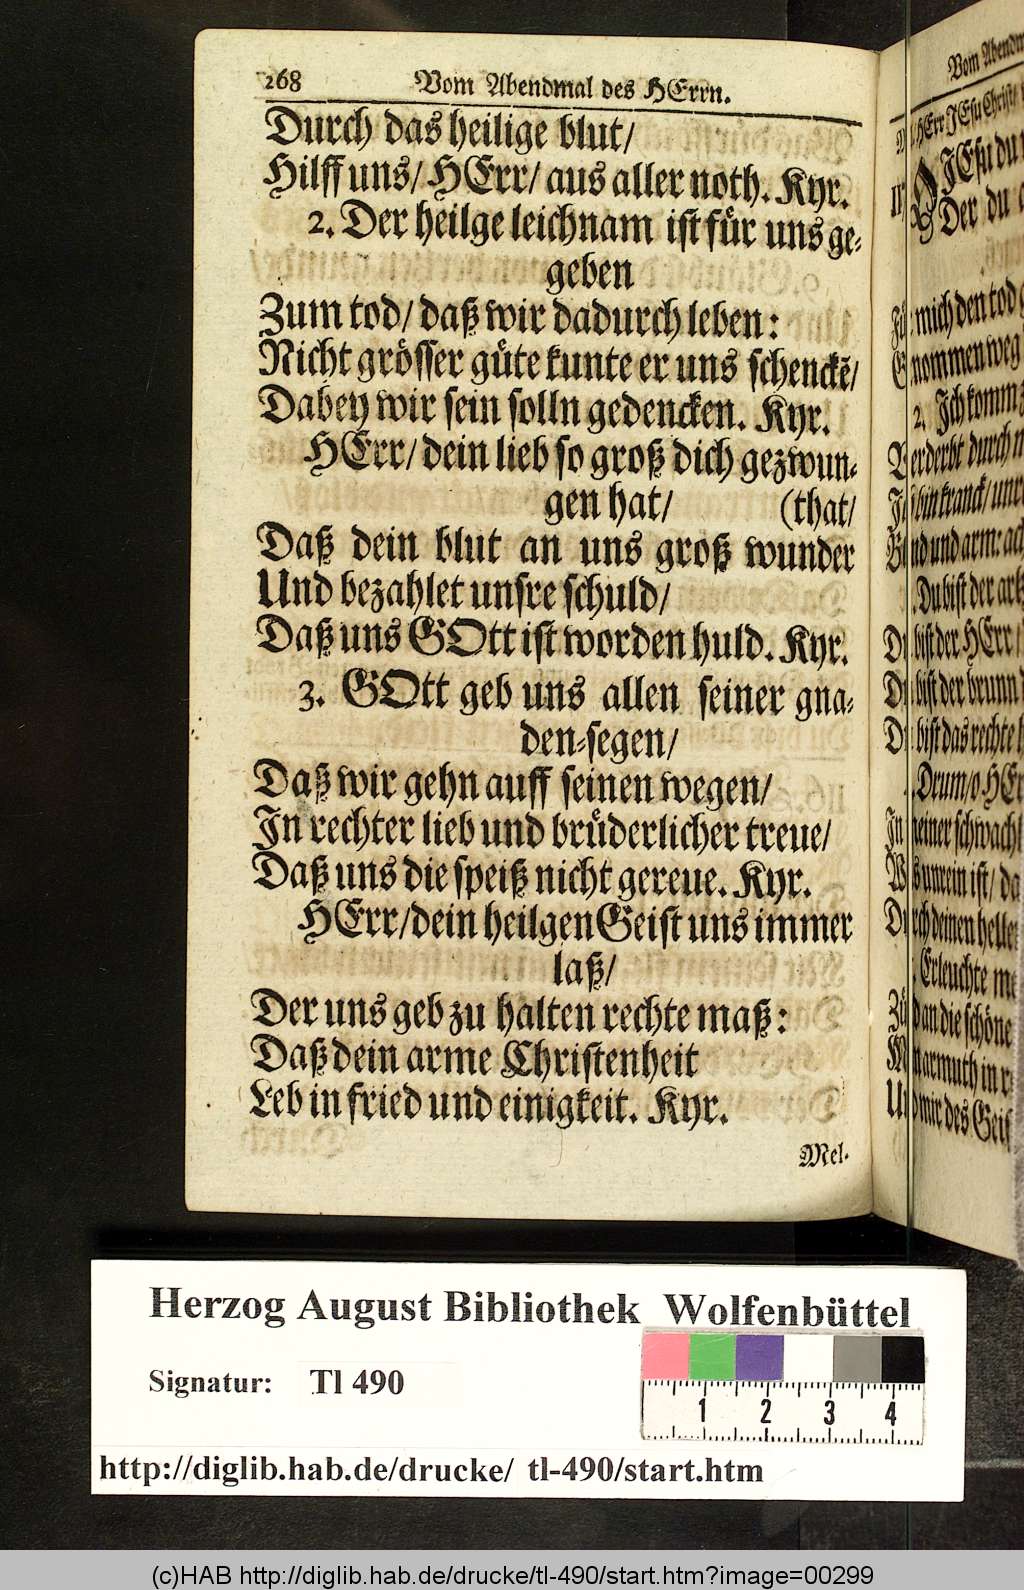 268 Vom Abendmal des HErrn.
Durch das heilige blut/
Hilff uns/ HErr/ aus aller noth. Kyr.
2. Der heilge leichnam ist für uns ge-
geben
Zum tod/ daß wir dadurch leben:
Nicht grösser güte kunte er uns schenckē/
Dabey wir sein solln gedencken. Kyr.
HErr/ dein lieb so groß dich gezwun-
gen hat/ (that/
Daß dein blut an uns groß wunder
Und bezahlet unsre schuld/
Daß uns GOtt ist worden huld. Kyr.
3. GOtt geb uns allen seiner gna-
den-segen/
Daß wir gehn auff seinen wegen/
In rechter lieb und brüderlicher treue/
Daß uns die speiß nicht gereue. Kyr.
HErr/ dein heilgen Geist uns immer
laß/
Der uns geb zu halten rechte maß:
Daß dein arme Christenheit
Leb in fried und einigkeit. Kyr.
Mel.
Vom Abendm
HErr JEsu Christ
JEsu du
Der du
mich den tod
nommen weg
2. Ich komm
erderbt durch
bin kranck/ unr
nd und arm: ach
Du bist der
bist der HErr
bist der brunn
bist das rechte
Drum/ o HEr
In meiner schwach
unrein ist/ da
Durch deinen helle
Erleuchte
an die schöne
armuth in
Und mir des Geis
Herzog August Bibliothek Wolfenbüttel
Signatur: Tl 490
1 2 3 4
http://diglib.hab.de/drucke/ tl-490/start.htm
(c)HAB http://diglib.hab.de/drucke/tl-490/start.htm?image=00299